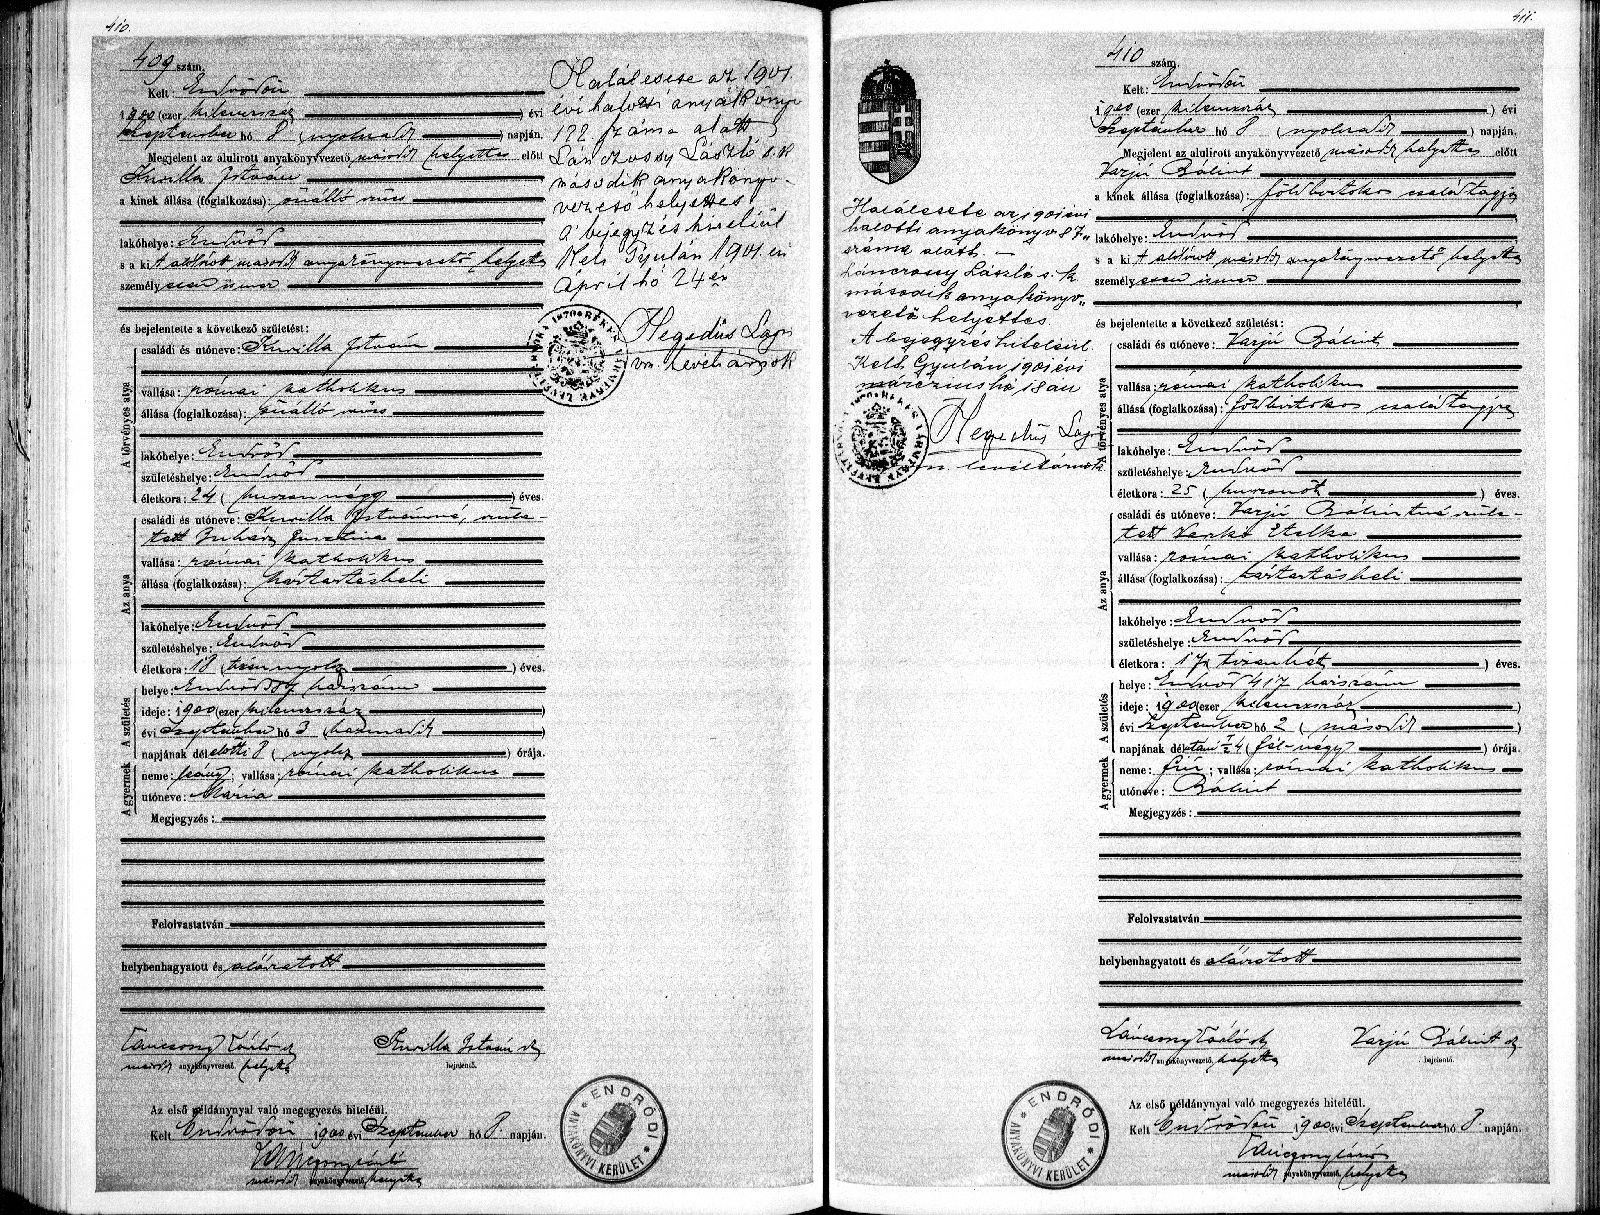 410.
409 szám.
Kelt: Endrődön
1900 (ezer kilenczszáz) évi
szeptember hó 8 (nyolczadik) napján.
Megjelent az alulirott anyakönyvvezető második helyettes előtt
István
a kinek állása (foglalkozása): önálló
lakóhelye: Endrőd
s a kit alólirott második anyakönyvvezető helyettes
személyesen ismer
és bejelentette a következő születést:
A törvényes atya
családi és utóneve: István
vallása: római katholikus
állása (foglalkozása): önálló
lakóhelye: Endrőd
születéshelye: Endrőd
életkora: 24 (huszonnégy) éves.
Az anya
családi és utóneve: Istvánné, szüle-
tett Juhász Jusztina
vallása: római katholikus
állása (foglalkozása): háztartásbeli
lakóhelye: Endrőd
születéshelye: Endrőd
életkora: 18 (tizennyolcz) éves.
A születés
helye: Endrőd házszám
ideje: 1900 (ezer kilenczszáz)
évi szeptember hó 3 (harmadik)
napjának délelőtti 8 (nyolcz) órája.
A gyermek
neme: leány; vallása: római katholikus
utóneve: Mária
Megjegyzés:
Felolvastatván
helybenhagyatott és aláiratott
második anyakönyvvezető helyettes
István
bejelentő.
Az első példánynyal való megegyezés hiteléül.
Kelt Endrődön, 1900 évi szeptember hó 8 napján.
második anyakönyvvezető helyettes
ENDRŐDI ANYAKÖNYVI KERÜLET
Halálesete az 1901
évi halotti anyakönyv
122 száma alatt
László s. k.
második anyakönyv-
vezető helyettes
A bejegyzés hiteléül
Kelt Gyulán 1901. évi
április hó 24 én
Hegedüs Lajos
vm. levéltárnok
411.
410 szám.
Kelt: Endrődön
1900 (ezer kilenczszáz) évi
szeptember hó 8 (nyolczadik) napján.
Megjelent az alulirott anyakönyvvezető második helyettes előtt
Varjú Bálint
a kinek állása (foglalkozása): földbirtokos családtagja
lakóhelye: Endrőd
s a kit alólirott második anyakönyvvezető helyettes
személyesen ismer
és bejelentette a következő születést:
A törvényes atya
családi és utóneve: Varjú Bálint
vallása: római katholikus
állása (foglalkozása): földbirtokos családtagja
lakóhelye: Endrőd
születéshelye: Endrőd
életkora: 25 (huszonöt) éves.
Az anya
családi és utóneve: Varjú Bálintné szüle-
tett Etelka
vallása: római katholikus
állása (foglalkozása): háztartásbeli
lakóhelye: Endrőd
születéshelye: Endrőd
életkora: 17 (tizenhét) éves.
A születés
helye: Endrőd 417 házszám
ideje: 1900 (ezer kilenczszáz)
évi szeptember hó 2 (második)
napjának délutáni 1/2 4 (fél-négy) órája.
A gyermek
neme: fiú; vallása: római katholikus
utóneve: Bálint
Megjegyzés:
Felolvastatván
helybenhagyatott és aláiratott
második anyakönyvvezető, helyettes
Varjú Bálint
bejelentő.
Az első példánynyal való megegyezés hiteléül.
Kelt Endrődön 1900 évi szeptember hó 8 napján.
második anyakönyvvezető, helyettes
ENDRŐDI ANYAKÖNYVI KERÜLET
Halálesete az 1901 évi
halotti anyakönyv 87"
száma alatt. —
László s. k.
második anyakönyv"
vezető helyettes.
A bejegyzés hiteléül.
Kelt Gyulán 1901 évi
márczius hó 18 án
Hegedüs Lajos
vm. levéltárnok